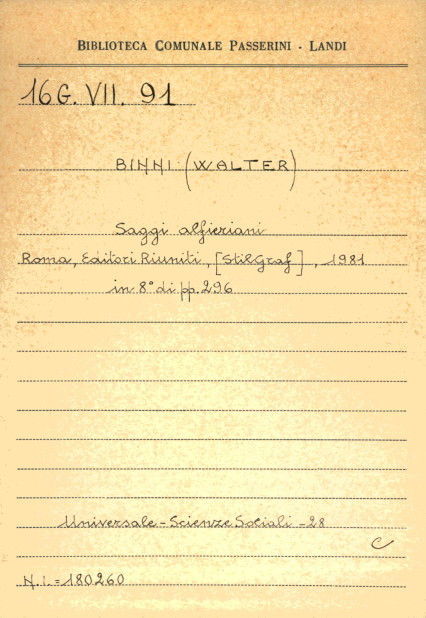 BIBLIOTECA COMUNALE PASSERINI - LANDI
16 G. VII. 91
BINNI (WALTER)
Saggi alfieriani
Roma, Editori Riuniti, [StilGraf], 1981
in 8° di pp. 296
Universale - Scienze Sociali - 28
C
N. i. = 180260